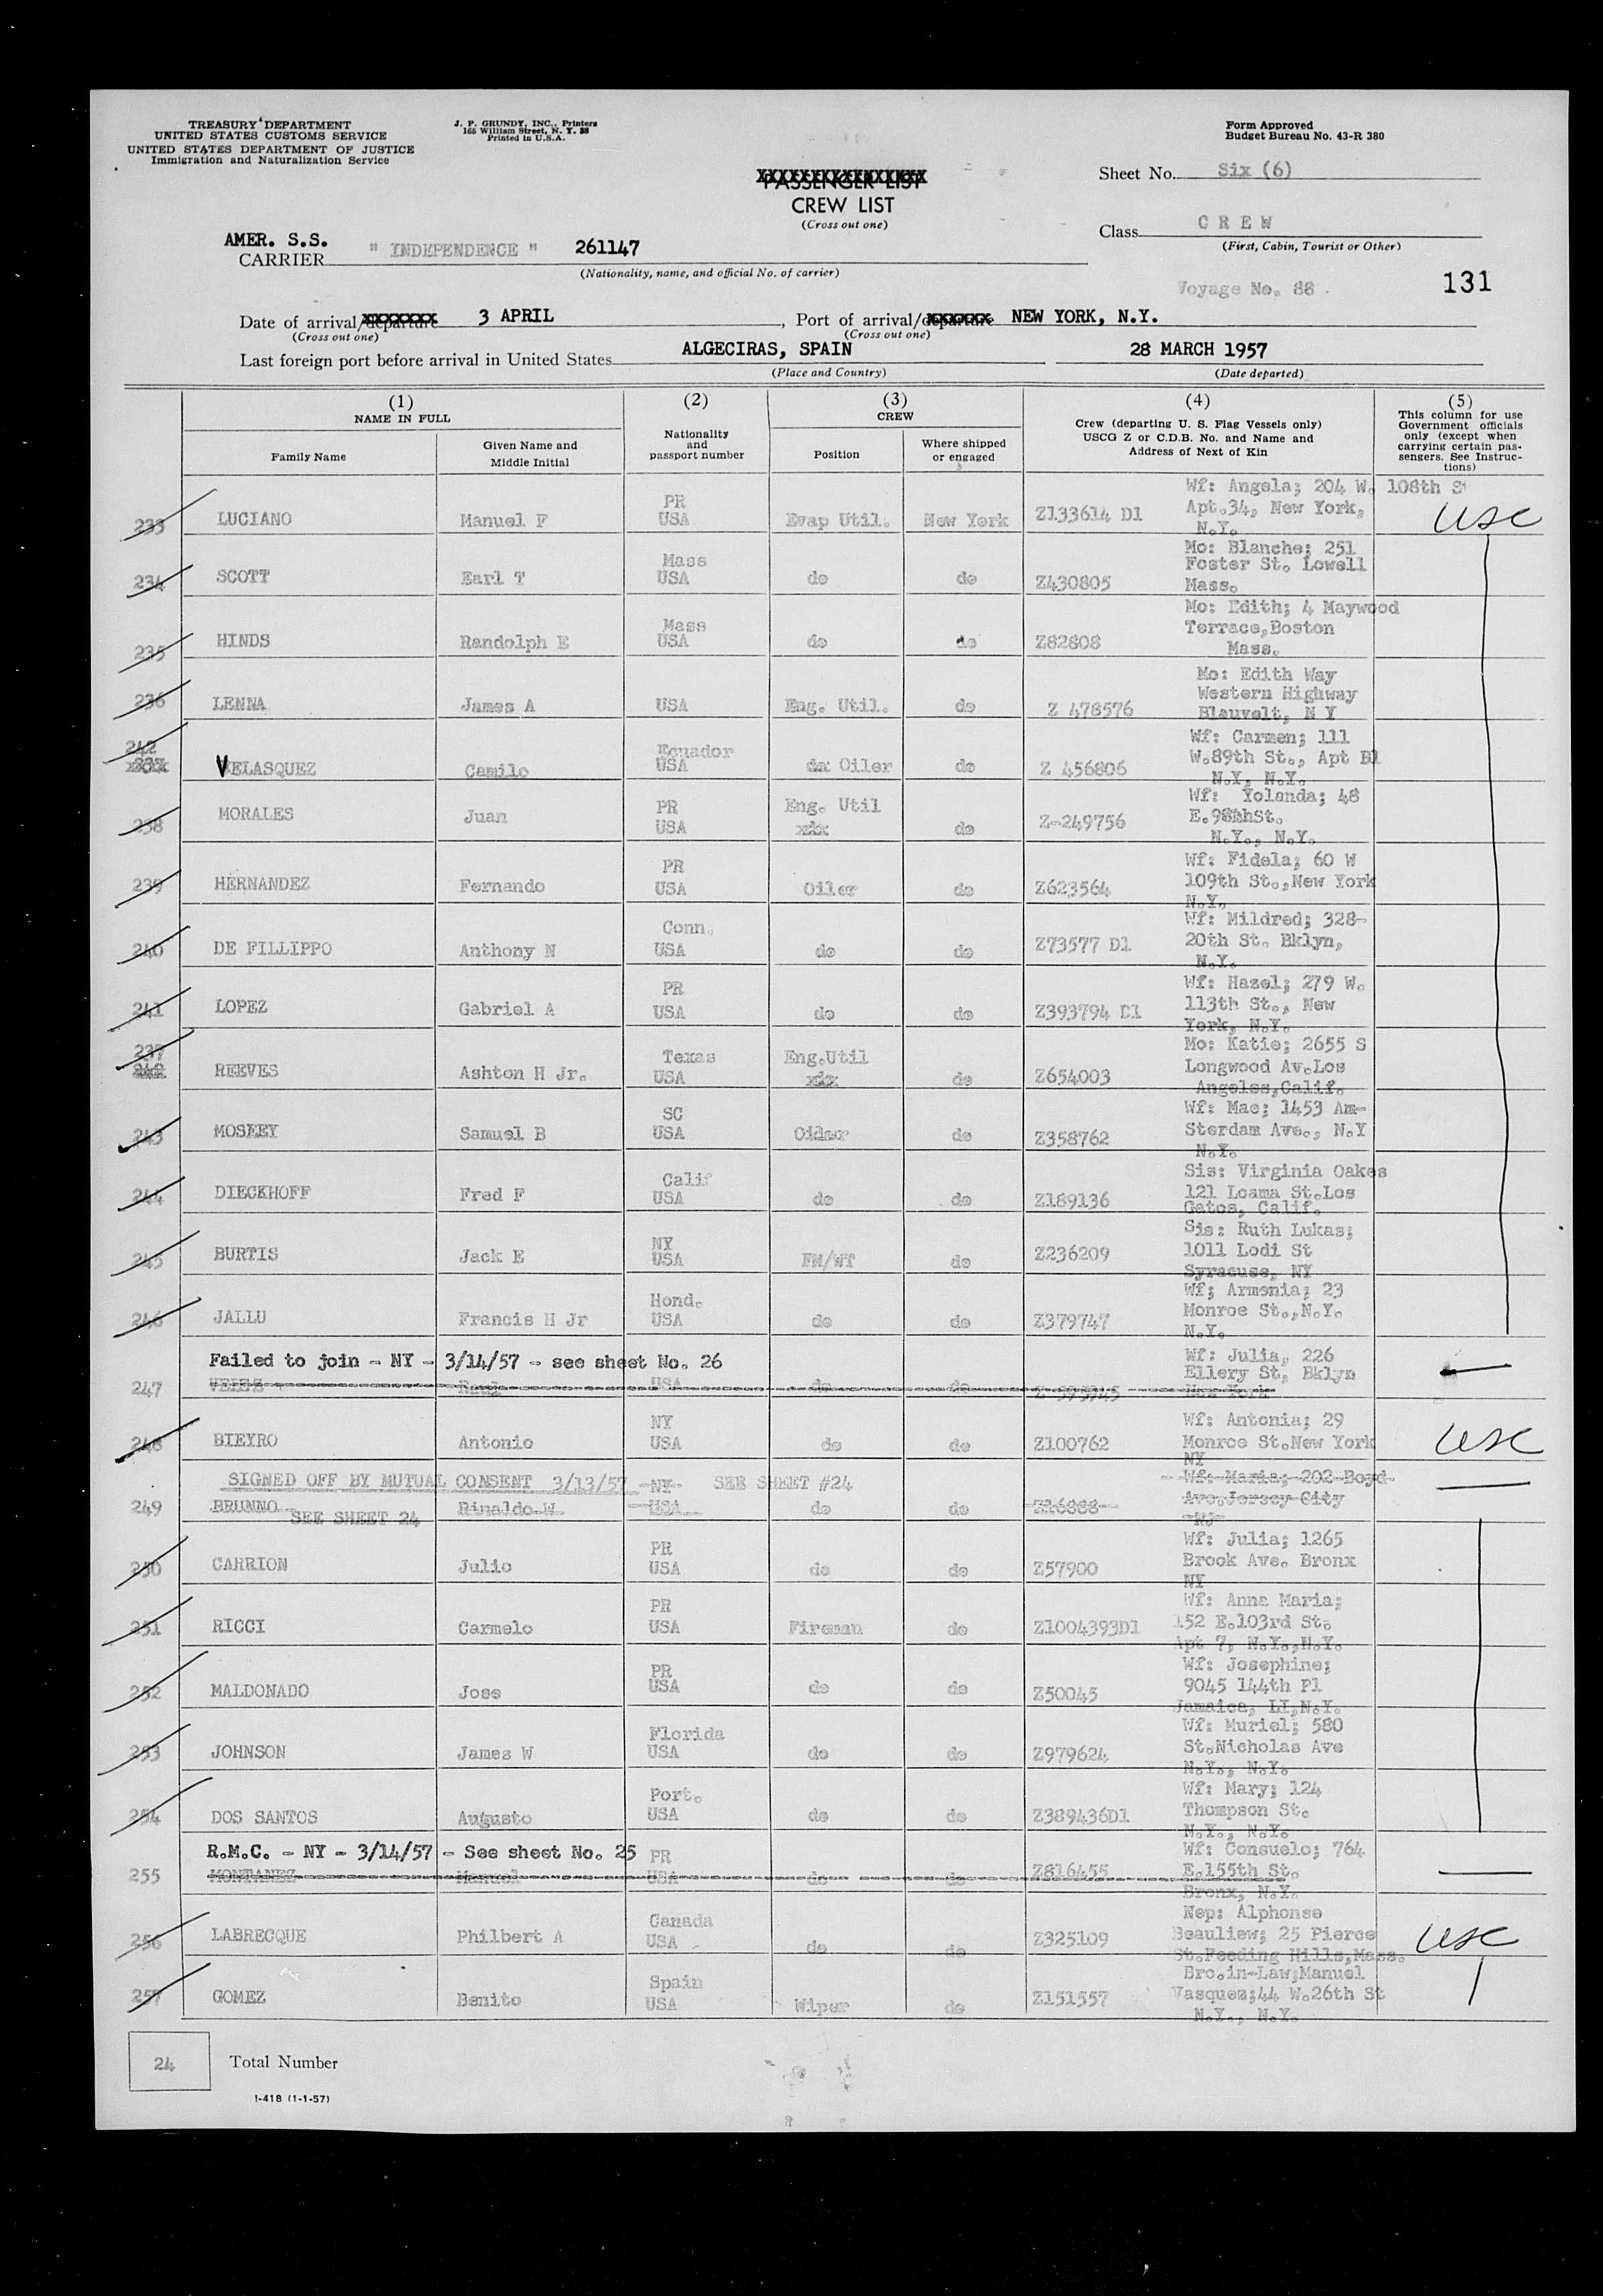 TREASURY DEPARTMENT
UNITED STATES CUSTOMS SERVICE
UNITED STATES DEPARTMENT OF JUSTICE
Immigration and Naturalization Service
J. P. GRUNDY, INC., Printers
165 William Street, N. Y. 38
Printed in U.S.A.
Form Approved
Budget Bureau No. 43-R 380
PASSENGER LIST
CREW LIST
(Cross out one)
Sheet No. Six (6)
Class CREW
(First, Cabin, Tourist or Other)
AMER. S.S.
CARRIER " INDEPENDENCE " 261147
(Nationality, name, and official No. of carrier)
Voyage No. 88 .
131
Date of arrival/departure 3 APRIL , Port of arrival/departure NEW YORK, N.Y.
(Cross out one) (Cross out one)
Last foreign port before arrival in United States ALGECIRAS, SPAIN 28 MARCH 1957
(Place and Country) (Date departed)
(1) NAME IN FULL
Family Name
Given Name and Middle Initial
(2) Nationality and passport number
(3) CREW
Position
Where shipped or engaged
(4) Crew (departing U. S. Flag Vessels only) USCG Z or C.D.B. No. and Name and Address of Next of Kin
(5) This column for use Government officials only (except when carrying certain passengers. See Instructions)
233 LUCIANO Manuel F PR USA Evap Util. New York Z133614 D1 Wf: Angela; 204 W. 108th St Apt.34, New York, N.Y. USC
234 SCOTT Earl T Mass USA do do Z430805 Mo: Blanche; 251 Foster St. Lowell Mass.
235 HINDS Randolph E Mass USA do do Z82808 Mo: Edith; 4 Maywood Terrace,Boston Mass.
236 LENNA James A USA Eng. Util. do Z 478576 Mo: Edith Way Western Highway Blauvelt, N Y
242 237 VELASQUEZ Camilo Ecuador USA do Oiler do Z 456806 Wf: Carmen; 111 W.89th St., Apt B1 N.Y, N.Y.
238 MORALES Juan PR USA Eng. Util do Z-249756 Wf: Yolanda; 48 E.98hhSt. N.Y., N.Y.
239 HERNANDEZ Fernando PR USA Oiler do Z623564 Wf: Fidela; 60 W 109th St.,New York N.Y.
240 DE FILLIPPO Anthony N Conn. USA do do Z73577 D1 Wf: Mildred; 328- 20th St. Bklyn, N.Y.
241 LOPEZ Gabriel A PR USA do do Z393794 D1 Wf: Hazel; 279 W. 113th St., New York, N.Y.
237 242 REEVES Ashton H Jr. Texas USA Eng.Util do Z654003 Mo: Katie; 2655 S Longwood Av.Los Angeles,Calif.
243 MOSEEY Samuel B SC USA Oiler do Z358762 Wf: Mae; 1453 Am- Sterdam Ave., N.Y N.Y.
244 DIECKHOFF Fred F Calif USA do do Z189136 Sis: Virginia Oakes 121 Loama St.Los Gatos, Calif.
245 BURTIS Jack E NY USA FM/WT do Z236209 Sis: Ruth Lukas; 1011 Lodi St Syracuse, NY
246 JALLU Francis H Jr Hond. USA do do Z379747 Wf; Armenia; 23 Monroe St.,N.Y. N.Y.
Failed to join - NY - 3/14/57 - see sheet No. 26
247 VELEZ USA do do Wf: Julia, 226 Ellery St, Bklyn New York
248 BIEYRO Antonio NY USA do do Z100762 Wf: Antonia; 29 Monroe St.New York NY USC
SIGNED OFF BY MUTUAL CONSENT 3/13/57 NY SEE SHEET #24
249 BRUNNO Rinaldo W. USA do do Z16888 Wf: Maria; 202 Boyd Ave.Jersey City NJ
SEE SHEET 24
250 CARRION Julio PR USA do do Z57900 Wf: Julia; 1265 Brook Ave. Bronx NY
251 RICCI Carmelo PR USA Fireman do Z1004393D1 Wf: Anna Maria; 152 E.103rd St. Apt 7, N.Y.,N.Y.
252 MALDONADO Jose PR USA do do Z50045 Wf: Josephine; 9045 144th Pl Jamaica, LI,N.Y.
253 JOHNSON James W Florida USA do do Z979624 Wf: Muriel; 580 St.Nicholas Ave N.Y., N.Y.
254 DOS SANTOS Augusto Port. USA do do Z389436D1 Wf: Mary; 124 Thompson St. N.Y., N.Y.
R.M.C. - NY - 3/14/57 - See sheet No. 25
255 MONTANEZ Manuel PR USA do do Z816455 Wf: Consuelo; 764 E.155th St. Bronx, N.Y.
256 LABRECQUE Philbert A Canada USA do do Z325109 Nep: Alphonse Beauliew; 25 Pierce St.Feeding Hills,Mass. USC
257 GOMEZ Benito Spain USA Wiper do Z151557 Bro.in-Law;Manuel Vasquez;44 W.26th St N.Y., N.Y.
24 Total Number
I-418 (1-1-57)